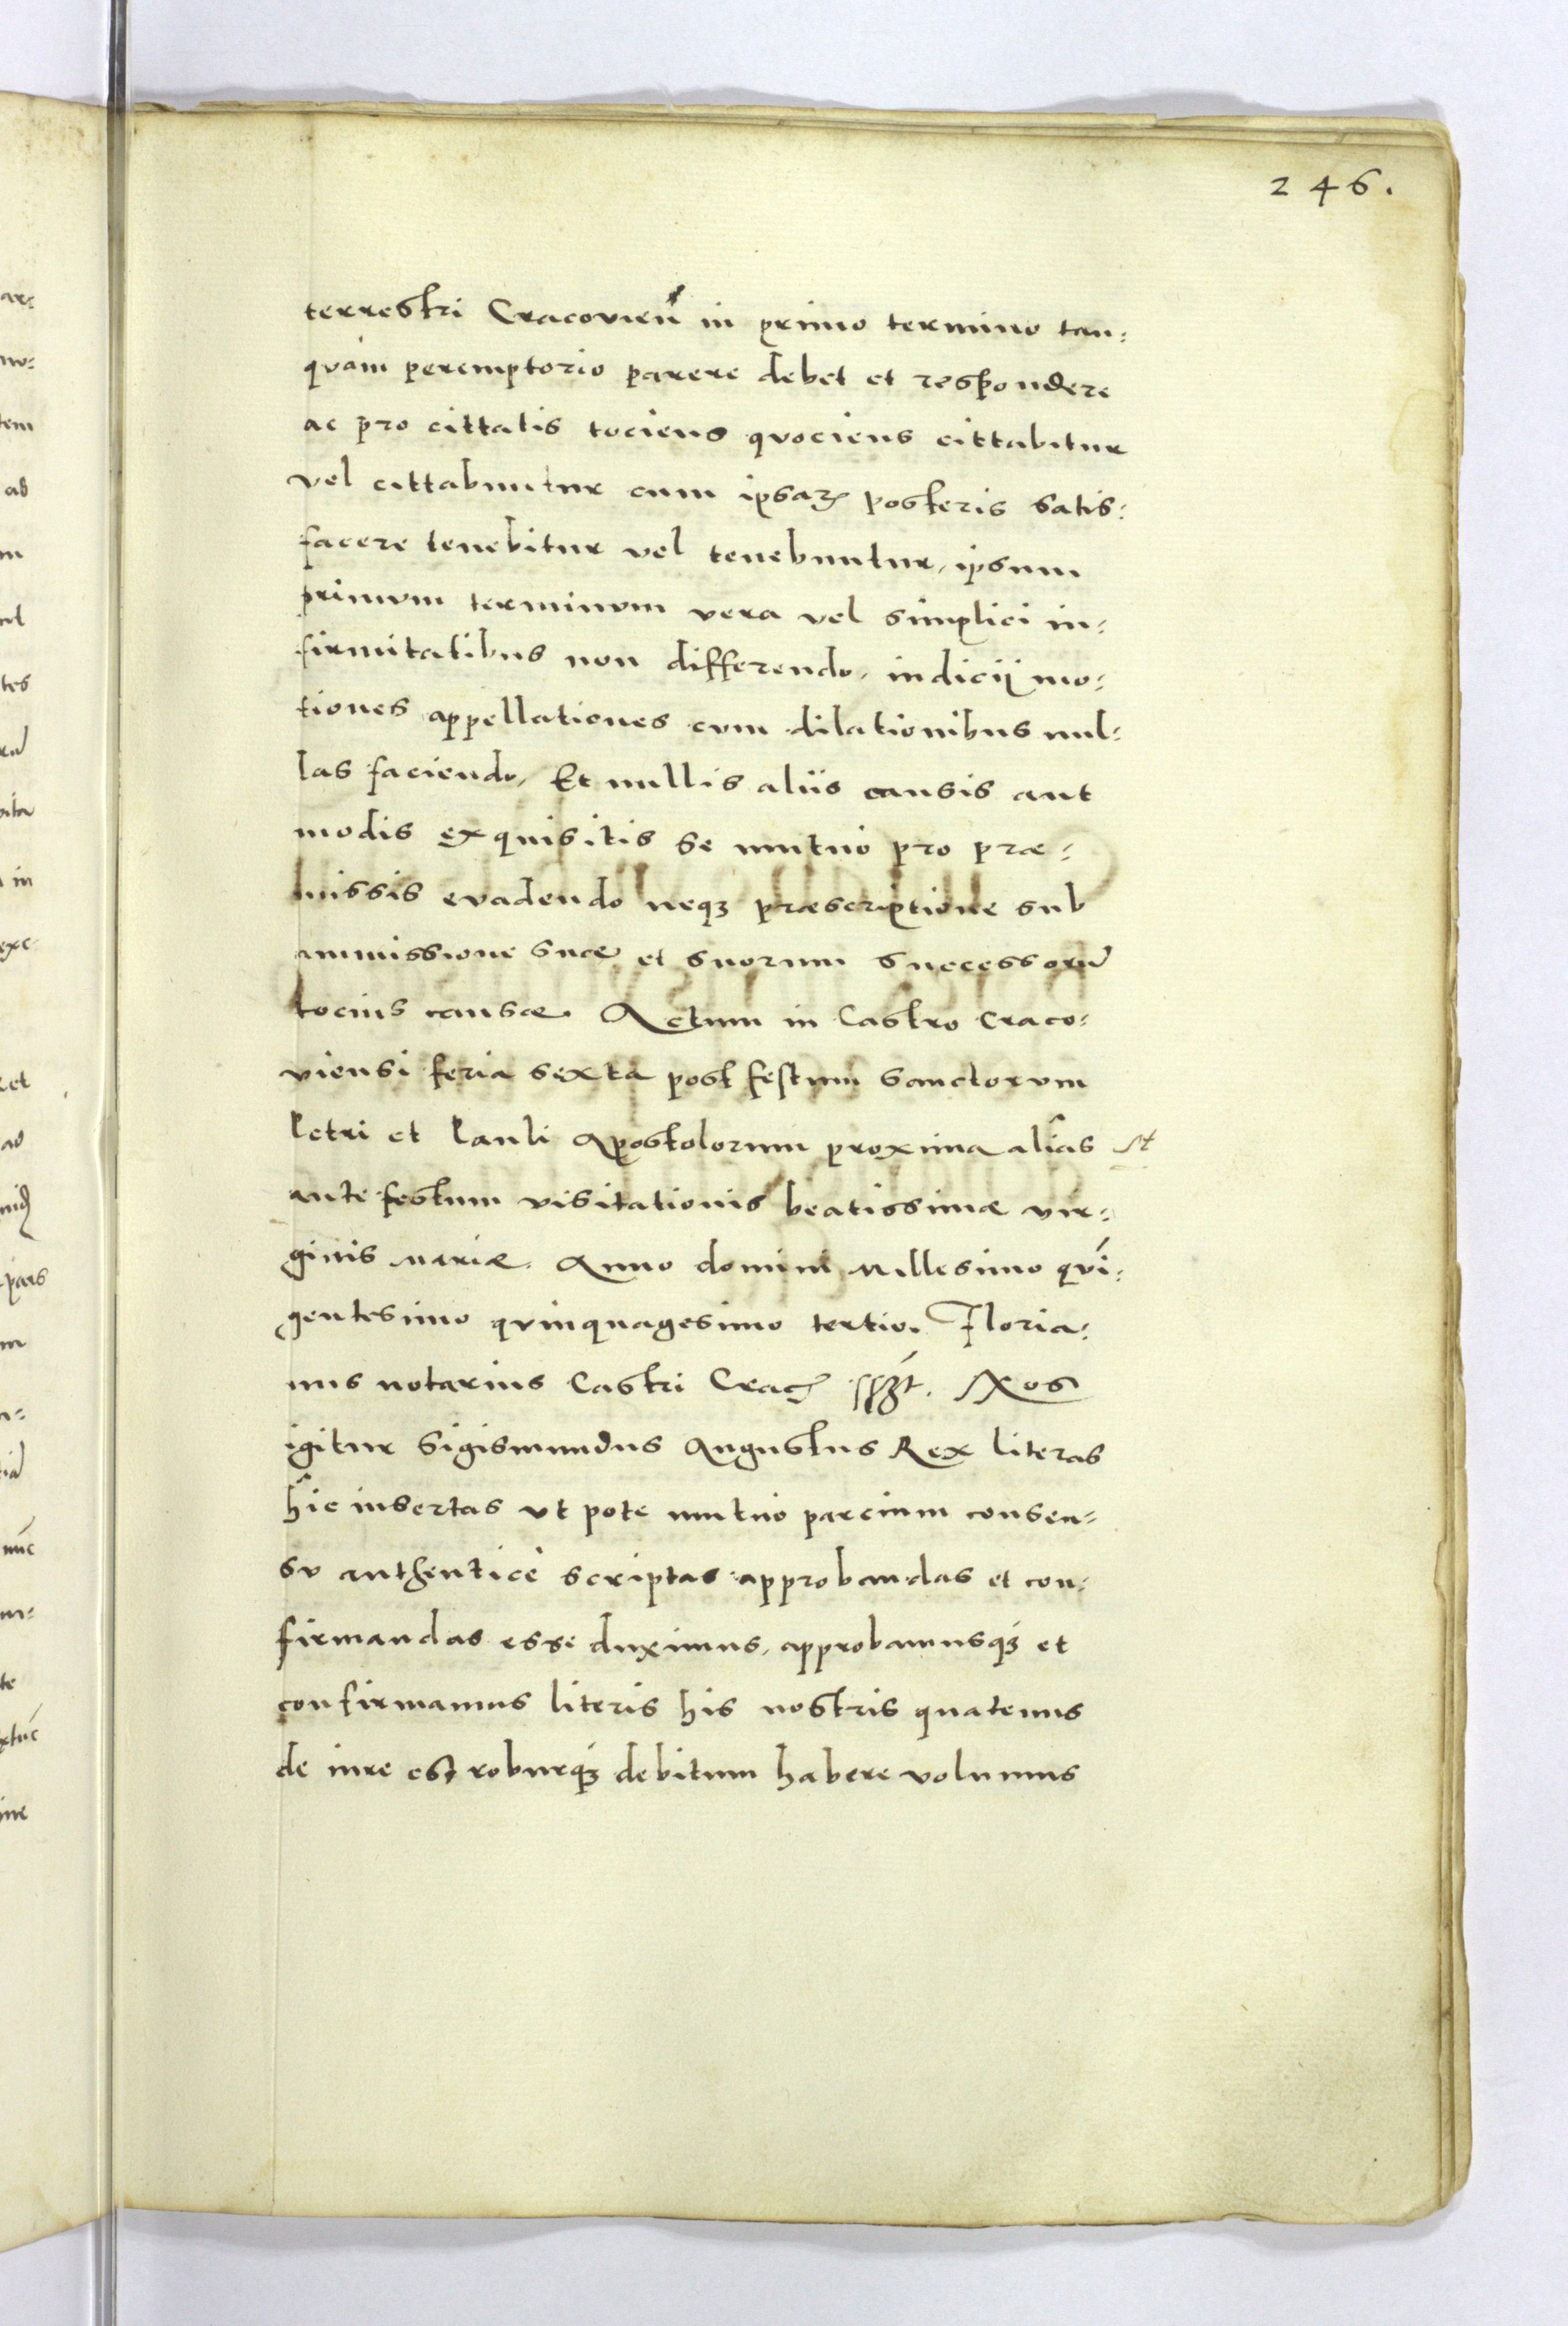 246.
terrestri Cracovieñ in primo termino tan:
quam peremptorio parere debet et respondere
ac pro cittatis tociens quociens cittabitur
vel cittabuntur cum ipsaꝝ posteris satis:
facere tenebitur vel tenebuntur, ipsum
primvm terminvm vera vel simplici in:
firmitatibus non differendo, iudicij mo:
tiones appellationes cvm dilationibus nul:
las faciendo, Et nullis aliis causis aut
modis exquisitis se mutuo pro præ:
missis evadendo neqꝫ præscriptione sub
ammissione suæ et suorum successorū
tocius causæ. Actum in Castro Craco:
viensi feria sexta post festum sanctorvm
Petri et Pauli Apostolorum proxima aliâs st
ante festum visitationis beatissimæ vir:
ginis Mariæ. Anno domini Millesimo qvi:
gentesimo qvinquagesimo tertio. Floria:
nus notarius Castri Crac̄ sszt. Nos
igitur Sigismundus Augustus Rex literas
hîc insertas vt pote mutuo parcium consen:
sv authenticè scriptas approbandas et con:
firmandas esse duximus, approbamusqꝫ et
confirmamus literis his nostris quatenus
de iure est roburqꝫ debitum habere volumus